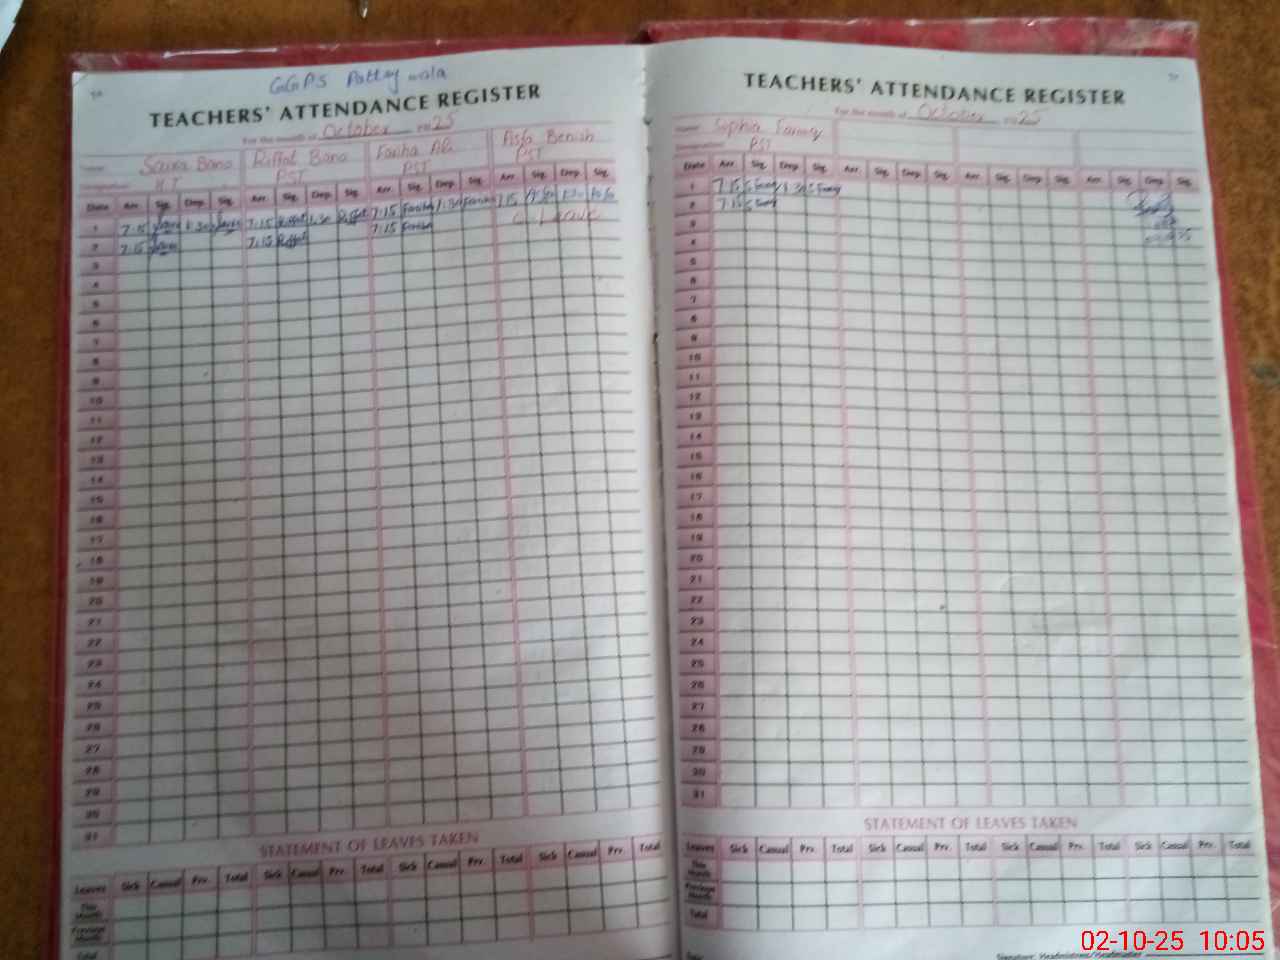 GGPS
TEACHERS' ATTENDANCE REGISTER
For the month of October 2025
Name Saira Bano Riffat Bano Fariha Ali Asfa Benish
Designation H.T PST PST PST
Date Arr. Sig. Dep. Sig. Arr. Sig. Dep. Sig. Arr. Sig. Dep. Sig. Arr. Sig. Dep. Sig.
1 7:15 Saira 1:30 Saira 7:15 Riffat 1:30 Riffat 7:15 Fariha 1:30 Fariha 7:15 1:30
2 7:15 Saira 7:15 Riffat 7:15 Fariha C. Leave
3
4
5
6
7
8
9
10
11
12
13
14
15
16
17
18
19
20
21
22
23
24
25
26
27
28
29
30
31
STATEMENT OF LEAVES TAKEN
Leaves Sick Casual Prv. Total Sick Casual Prv. Total Sick Casual Prv. Total Sick Casual Prv. Total
This Month
Previous Month
Total
TEACHERS' ATTENDANCE REGISTER
For the month of October 2025
Name Sophia
Designation PST
Date Arr. Sig. Dep. Sig. Arr. Sig. Dep. Sig. Arr. Sig. Dep. Sig. Arr. Sig. Dep. Sig.
1 7:15 1:30
2 7:15
3
4
5
6
7
8
9
10
11
12
13
14
15
16
17
18
19
20
21
22
23
24
25
26
27
28
29
30
31
STATEMENT OF LEAVES TAKEN
Leaves Sick Casual Prv. Total Sick Casual Prv. Total Sick Casual Prv. Total Sick Casual Prv. Total
This Month
Previous Month
Total
Signature: Headmistress/Headmaster
02-10-25 10:05